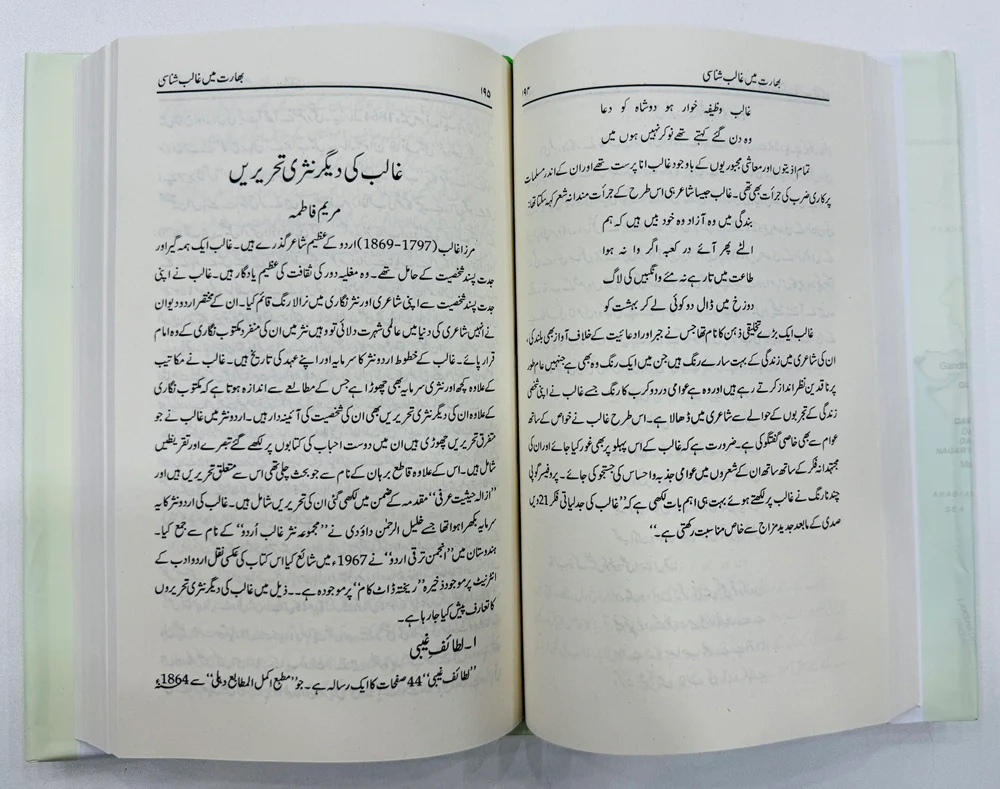 بھارت میں غالب شناسی
غالب وظیفہ خوار ہو دو شاہ کو دعا
وہ دن گئے کہتے تھے نوکر نہیں ہوں میں
تمام اذیتوں اور معاشی مجبوریوں کے باوجود غالب انا پرست تھے اور ان کے اندر مسلمات
پر کاری ضرب کی جرأت بھی تھی۔ غالب جیسا شاعر ہی اس طرح کے جرأت مندانہ شعر کہہ سکتا تھا:
بندگی میں وہ آزاد وہ خود بیں ہیں کہ ہم
الٹے پھر آئے در کعبہ اگر وا نہ ہوا
طاعت میں تا رہے نہ مئے و انگبیں کی لاگ
دوزخ میں ڈال دو کوئی لے کر بہشت کو
غالب ایک بڑے تخلیقی ذہن کا نام تھا جس نے جبر اور ادعائیت کے خلاف آواز بھی بلند کی،
ان کی شاعری میں زندگی کے بہت سارے رنگ ہیں جن میں ایک رنگ وہ بھی ہے جنہیں عام طور
پر ناقدین نظر انداز کرتے رہے ہیں اور وہ ہے عوامی درد و کرب کا رنگ جسے غالب نے اپنی شخصی
زندگی کے تجربوں کے حوالے سے شاعری میں ڈھالا ہے۔ اس طرح غالب نے خواص کے ساتھ
عوام سے بھی خاصی گفتگو کی ہے۔ ضرورت ہے کہ غالب کے اس پہلو پر بھی غور کیا جائے اور ان کی
مجتہدانہ فکر کے ساتھ ساتھ ان کے شعروں میں عوامی جذبہ و احساس کی جستجو کی جائے۔ پروفیسر گوپی
چند نارنگ نے غالب پر لکھتے ہوئے بہت ہی اہم بات لکھی ہے کہ ”غالب کی جدلیاتی فکر 21ویں
صدی کے مابعد جدید مزاج سے خاص مناسبت رکھتی ہے۔“
بھارت میں غالب شناسی
۱۹۵
غالب کی دیگر نثری تحریریں
مریم فاطمہ
مرزا غالب (1797-1869) اردو کے عظیم شاعر گذرے ہیں۔ غالب ایک ہمہ گیر اور
جدت پسند شخصیت کے حامل تھے۔ وہ مغلیہ دور کی ثقافت کی عظیم یادگار ہیں۔ غالب نے اپنی
جدت پسند شخصیت سے اپنی شاعری اور نثر نگاری میں نرالا رنگ قائم کیا۔ ان کے مختصر اردو دیوان
نے انہیں شاعری کی دنیا میں عالمی شہرت دلائی تو وہیں نثر میں ان کی منفرد مکتوب نگاری کے وہ امام
قرار پائے۔ غالب کے خطوط اردو نثر کا سرمایہ اور اپنے عہد کی تاریخ ہیں۔ غالب نے مکاتیب
کے علاوہ کچھ اور نثری سرمایہ بھی چھوڑا ہے جس کے مطالعے سے اندازہ ہوتا ہے کہ مکتوب نگاری
کے علاوہ ان کی دیگر نثری تحریریں بھی ان کی شخصیت کی آئینہ دار ہیں۔ اردو نثر میں غالب نے جو
متفرق تحریریں چھوڑی ہیں ان میں دوست احباب کی کتابوں پر لکھے گئے تبصرے اور تقریظیں
شامل ہیں۔ اس کے علاوہ قاطع برہان کے نام سے جو بحث چلی تھی اس سے متعلق تحریریں ہیں اور
”ازالہ حیثیت عرفی“ مقدمہ کے ضمن میں لکھی گئی ان کی تحریریں شامل ہیں۔ غالب کی اردو نثر کا یہ
سرمایہ بکھرا ہوا تھا جسے خلیل الرحمٰن داؤدی نے ”مجموعہ نثر غالب اُردو“ کے نام سے جمع کیا۔
ہندوستان میں ”انجمن ترقی اردو“ نے 1967ء میں شائع کیا اس کتاب کی عکسی نقل اردو ادب کے
انٹرنیٹ پر موجود ذخیرہ ”ریختہ ڈاٹ کام“ پر موجود ہے۔۔ ذیل میں غالب کی دیگر نثری تحریروں
کا تعارف پیش کیا جا رہا ہے۔
۱۔ لطائف غیبی
”لطائف غیبی“ 44 صفحات کا ایک رسالہ ہے۔ جو ”مطبع اکمل المطابع دہلی“ سے 1864ء